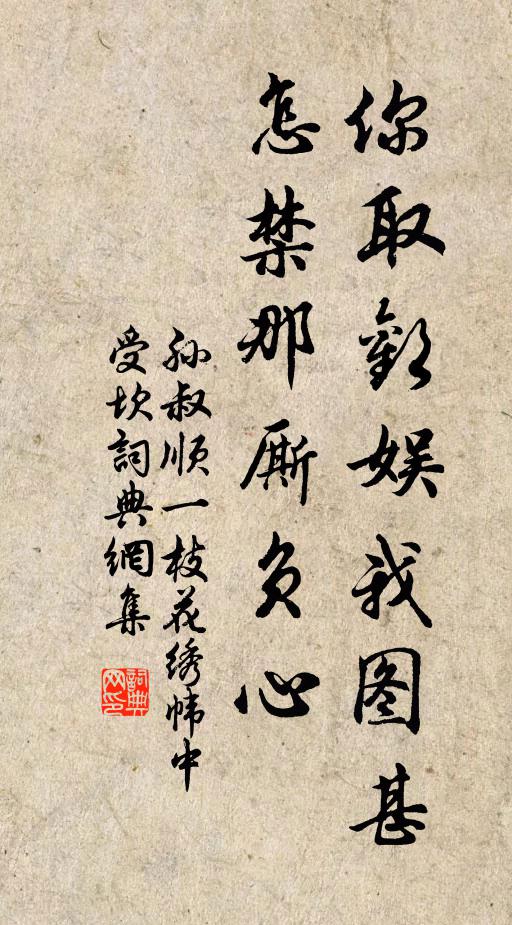 你取歡娱我图甚
怎禁那厮负心
孙叔顺一枝花绣帏中
受坎詞典網集
詞典
网印